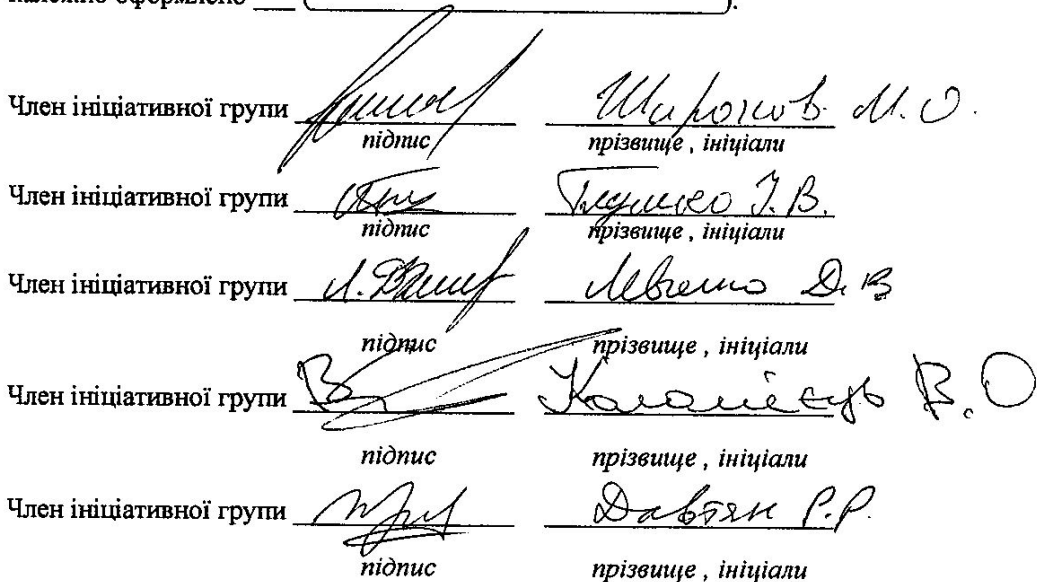 належно оформлено ___ ( ).
Член ініціативної групи Широков М.О.
підпис прізвище , ініціали
Член ініціативної групи І.В.
підпис прізвище , ініціали
Член ініціативної групи Д.В
підпис прізвище , ініціали
Член ініціативної групи Коломієць В.О
підпис прізвище , ініціали
Член ініціативної групи Давтян Р.Р.
підпис прізвище , ініціали